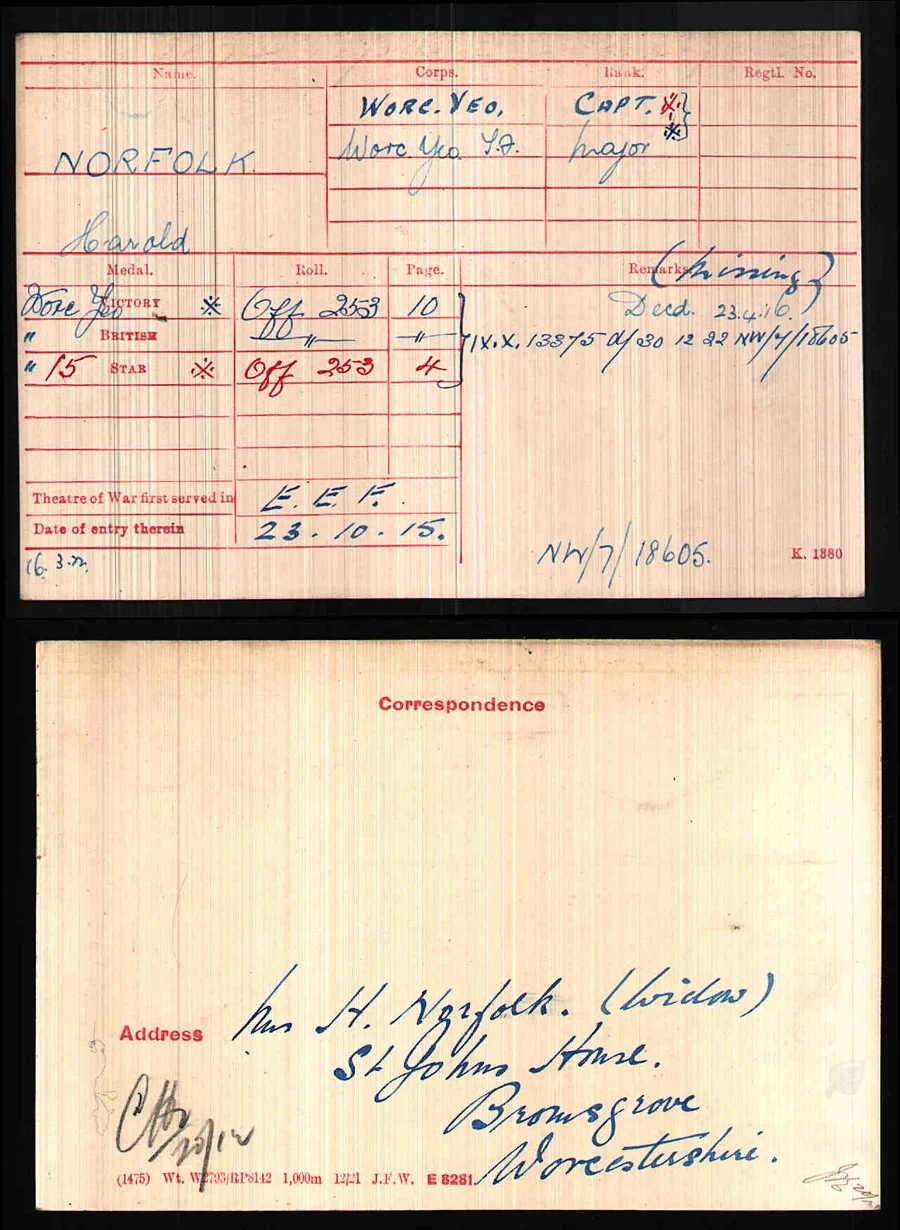 Name. Corps. Rank. Regtl. No.
WORC. YEO. CAPT. ※
※
NORFOLK. Worc. Yeo T.F. Major
Harold
Medal. Roll. Page. Remarks (Missing)
Worc Yeo VICTORY ※ Off 253 10 Decd. 23.4.16.
" BRITISH " " IV.X. 13375 d/30 12 22 NW/7/18605
" 15 STAR ※ Off 253 4
Theatre of War first served in E. E. F.
Date of entry therein 23. 10. 15.
16. 3.22. NW/7/18605. K. 1380
Correspondence
Address Mrs H. Norfolk. (Widow)
St Johns House.
Bromsgrove
Worcestershire.
20/12
(1475) Wt. W2793/RP8142 1,000m 12/21 J.F.W. E 8281.